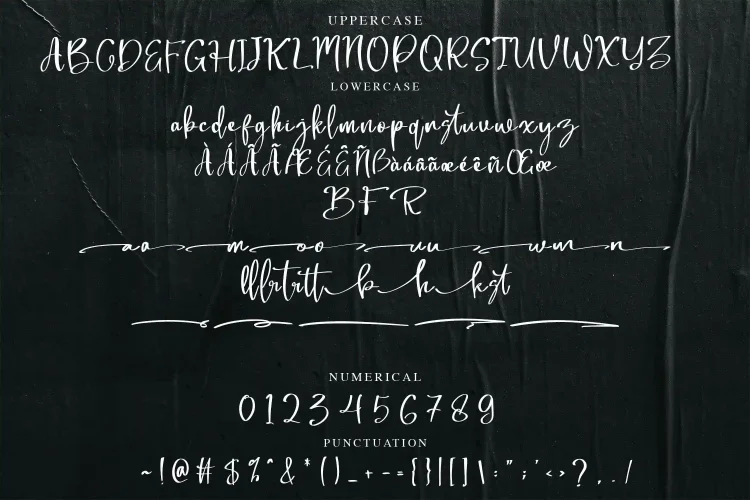 UPPERCASE
ABCDEFGHIJKLMNOPQRSTUVWXYZ
LOWERCASE
abcdefghijklmnopqrstuvwxyz
ÀÁÂÃÆÉÊÑßàáâãæéêñŒœ
BFR
aa m oo uu wm n
b h k
0123456789
NUMERICAL
0123456789
PUNCTUATION
~!@#$%^&*()_+-={}|[]\:";'<>?,./